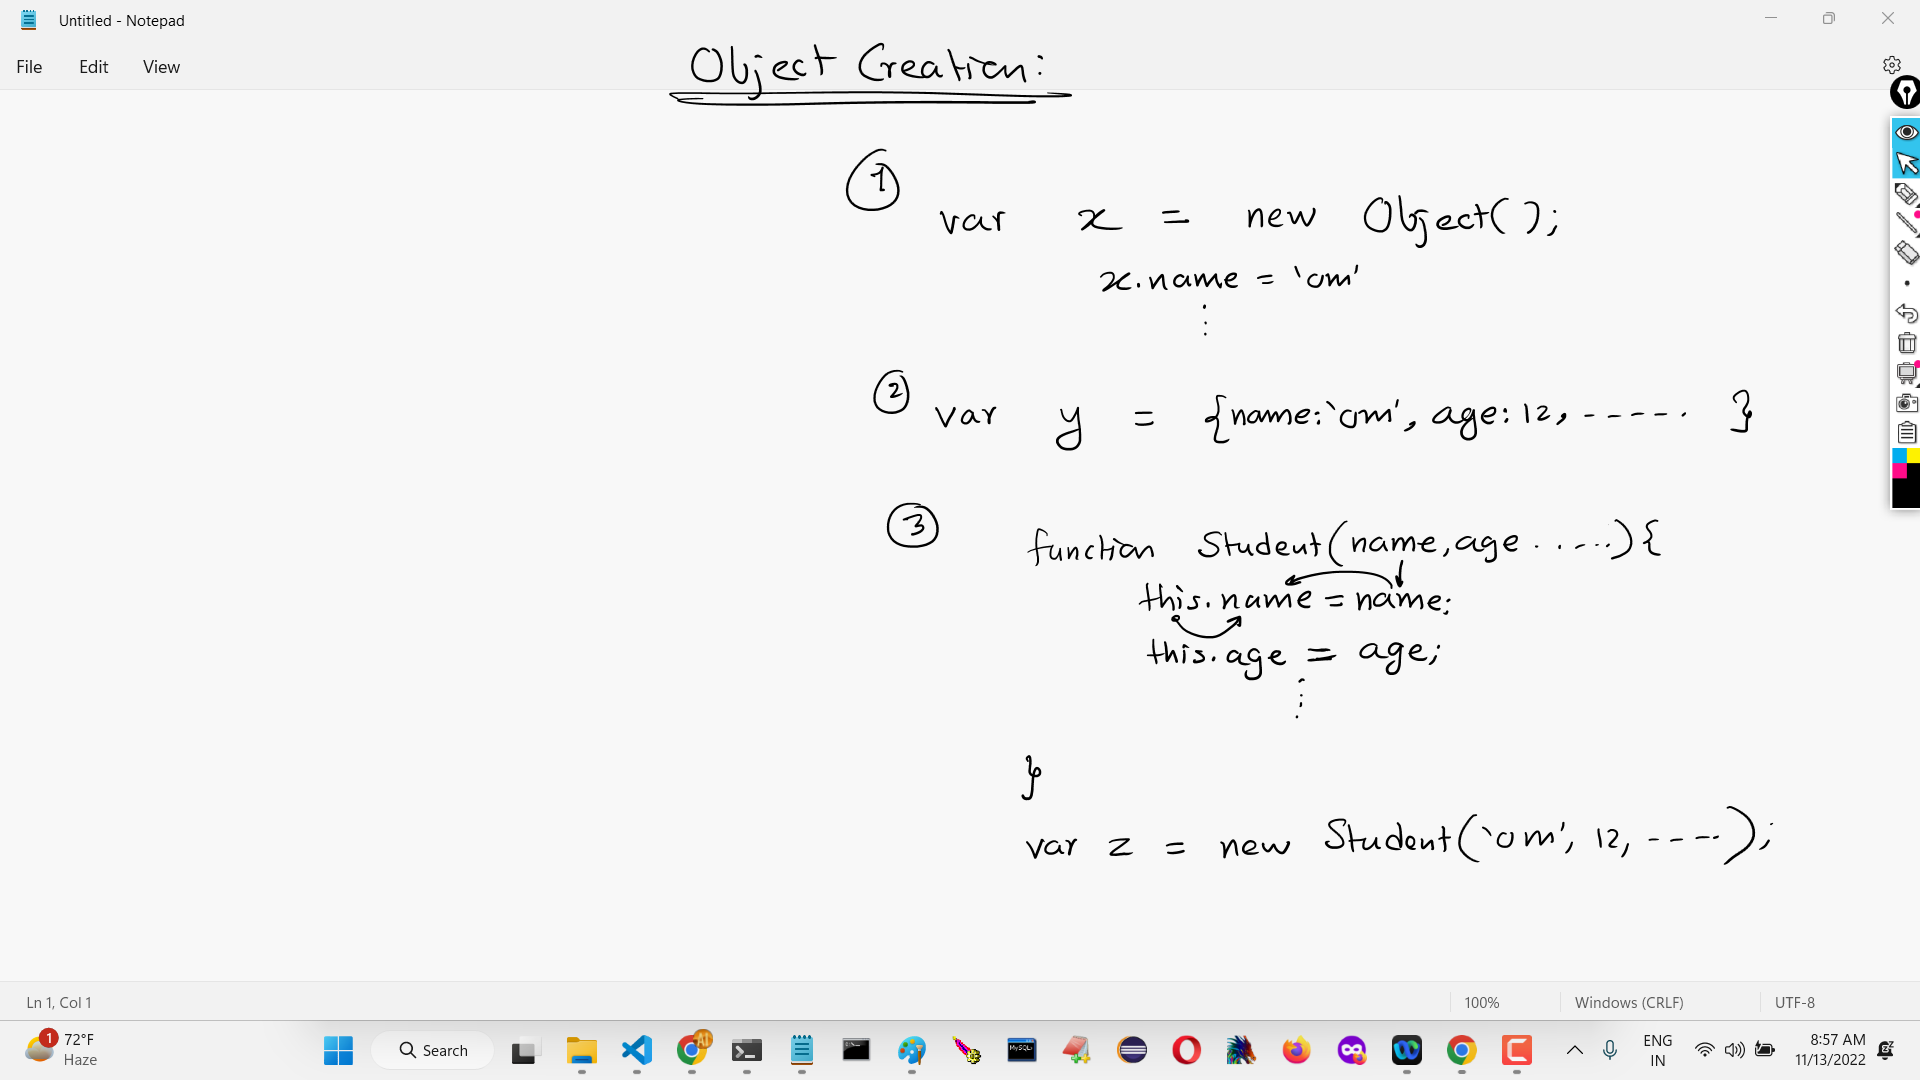 Untitled - Notepad
File Edit View
Object Creation:
1
var x = new Object();
x.name = 'om'
⋮
2 var y = {name:'om', age: 12, ----- }
3 function Student(name, age ......){
this.name = name;
this.age = age;
⋮
}
var z = new Student('om', 12, -----);
Ln 1, Col 1 100% Windows (CRLF) UTF-8
1 72°F Haze
Search
AI
MySQL
ENG IN
8:57 AM
11/13/2022